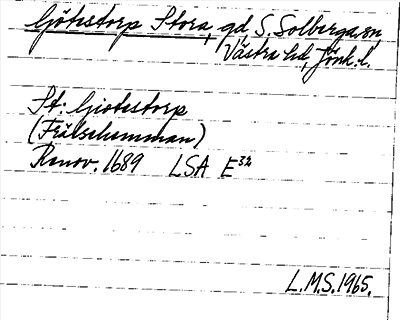 Götestorp Stora, gd, S. Solberga sn,
Västra hd, Jönk. l.
St: Giotestorp
(Frälsehemman)
Renov. 1689 LSA E³²
L.M.S. 1965.